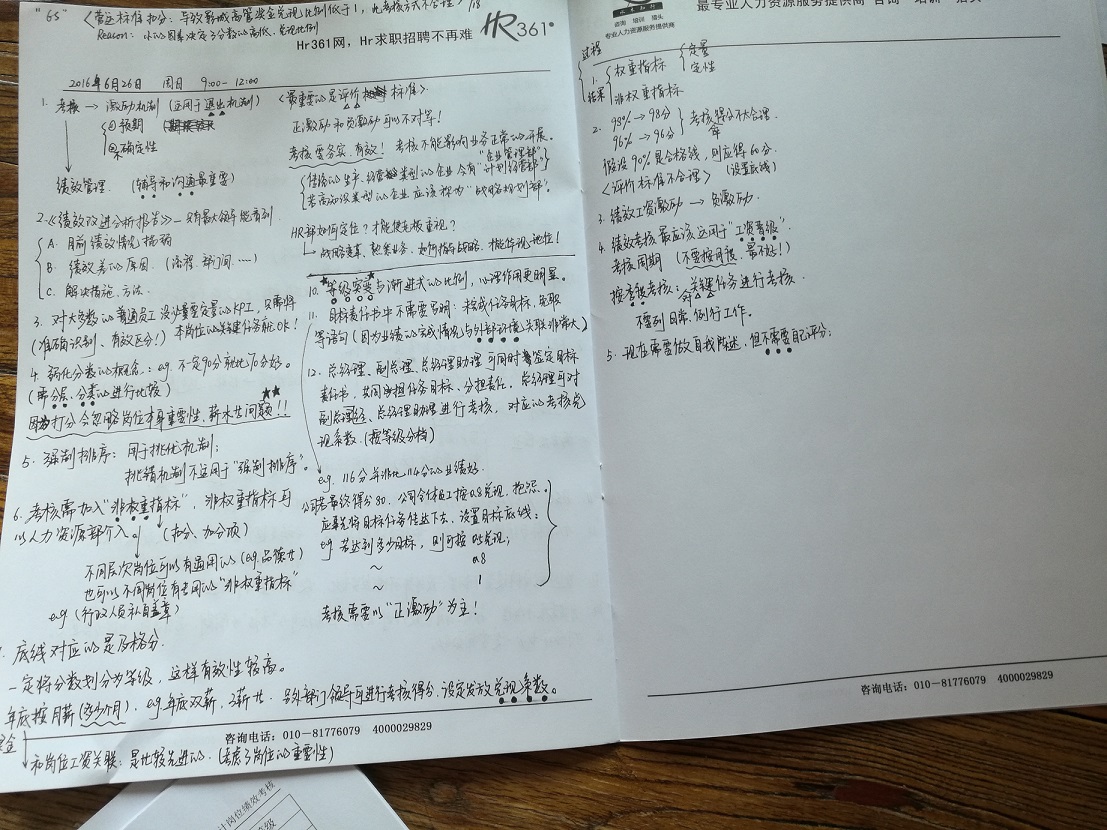 "6S" 《营运标准扣分:导致影城高管奖金兑现比例低于1,此考核方式不合理》/18
Reason: 小的因素决定了分数的高低、兑现比例
HR361°
Hr361网,Hr求职招聘不再难
2016年6月26日 周日 9:00-12:00
1. 考核 → 激励机制 (适用于退出机制)
①预期
②不确定性
绩效管理. (辅导和沟通最重要)
2.《绩效改进分析报告》— 只有最大领导能看到
A. 目前绩效情况
B. 绩效差的原因. (流程、部门间.…)
C. 解决措施、方法.
3. 对大多数的普通员工没必要定量的KPI,只需将
(准确识别、有效区分!) 本岗位的关键任务就OK!
4. 弱化分数的概念.: eg. 不一定90分就比70分好。
(需分层、分类的进行比较)
因为打分会忽略岗位本身重要性、薪水等问题!!
5. 强制排序: 用于挑优机制;
挑错机制不适用于"强制排序"。
6. 考核需加入"非权重指标",非权重指标可
以人力资源部介入。 (扣分、加分项)
不同层次岗位可以有通用的(eg.品德等)
也可以不同岗位有专用的"非权重指标"
eg (行政人员私自盖章)
7. 底线对应的是及格分.
一定将分数划分为等级,这样有效性较高。
年底按月薪(多少个月). eg年底双薪、3薪等. 另外部门领导可进行考核得分、设定发放兑现系数。
奖金
和岗位工资关联:是比较先进的. (考虑了岗位的重要性)
《最重要的是评价标准》
正激励和负激励可以不对等!
考核要务实、有效! 考核不能影响业务正常的开展.
传统的生产、经营类型的企业会有"企业管理部""计划经营部"
若高知识类型的企业应该称为"战略规划部".
HR部如何定位?才能使老板重视?
战略变革、熟悉业务、如何指导战略、才能体现地位!
10. 等级变更与渐进式的比例,心理作用更明显。
11. 目标责任书中不需要写明:未完成任务目标,免职
等语句(因为业绩的完成情况与外部环境关联非常大)
12. 总经理、副总经理、总经理助理可同时签定目标
责任书,共同承担任务目标、分担责任。总经理可对
副总经理、总经理助理进行考核,对应的考核兑
现系数.(按等级分档)
eg. 116分并非比114分的业绩好.
公司若最终得分80、公司全体员工按0.8兑现,抱怨.
应事先将目标任务传达下去、设置目标底线:
eg 若达到多少目标,则可按0.5兑现;
~ 0.8
~ 1
考核需要以"正激励"为主!
咨询电话:010-81776079 4000029829
咨询 培训 猎头
专业人力资源服务提供商
最专业人力资源服务提供商
过程
结果
1. 权重指标 定量 定性
非权重指标
2. 98% → 98分
96% → 96分
考核得分不太合理.
假设90%是合格线,则应得60分.
《评价标准不合理》 (设置底线)
3. 绩效工资激励 → 负激励.
4. 绩效考核最应该适用于"工资晋级".
考核周期 (不要按月度、最不好!)
按季度考核:对关键任务进行考核
不要列日常、例行工作。
5. 现在需要做自我陈述,但不需要自己评分;
咨询电话:010-81776079 4000029829